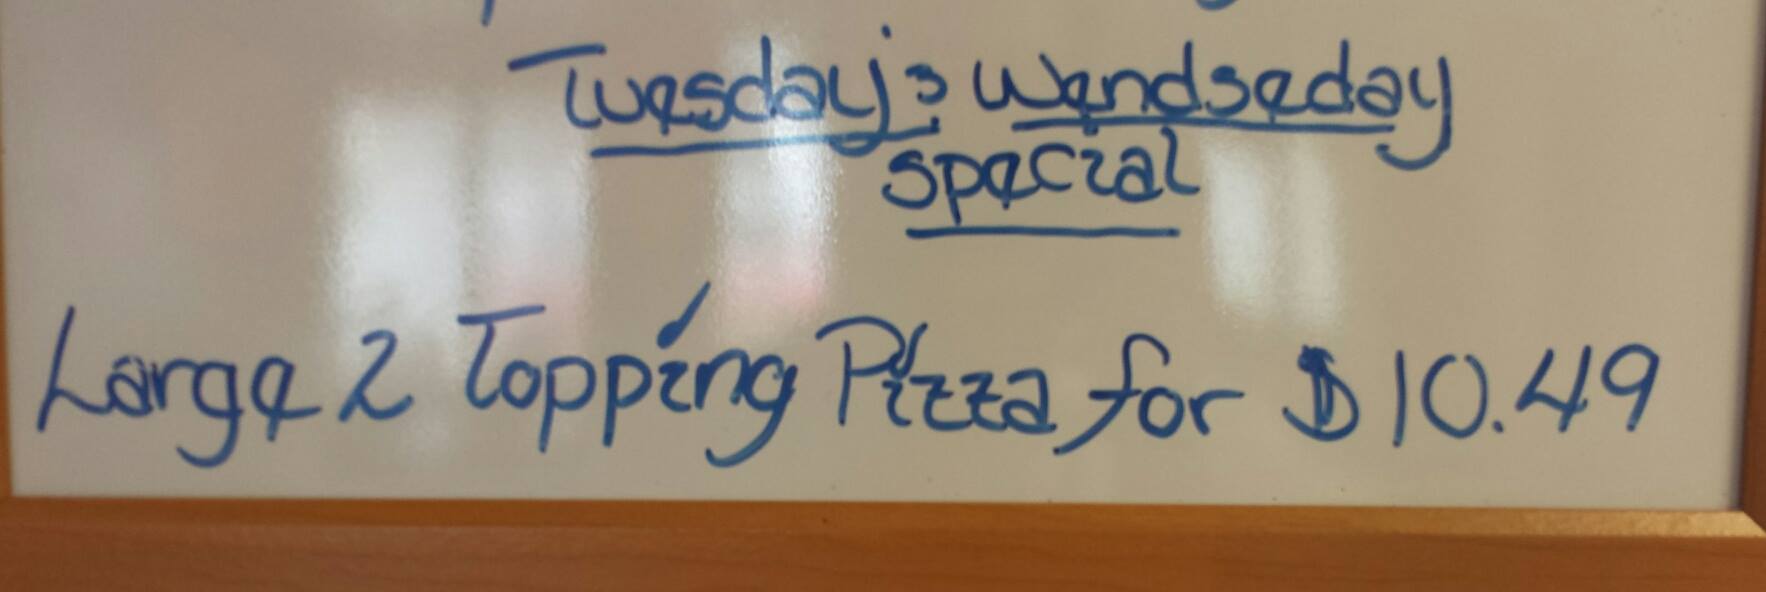 Tuesday's Wendseday
special
Large 2 Topping Pizza for $10.49